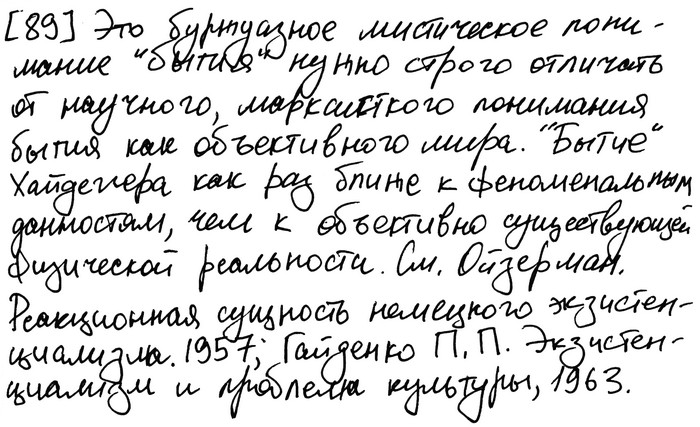 [89] Это буржуазное мистическое пони-
мание "бытия" нужно строго отличать
от научного, марксисткого понимания
бытия как объективного мира. "Бытие"
Хайдеггера как раз ближе к феноменальным
данностям, чем к объективно существующей
физической реальности. См. Ойзерман.
Реакционная сущность немецкого экзистен-
циализма. 1957; Гайденко П.П. Экзистен-
циализм и проблема культуры, 1963.